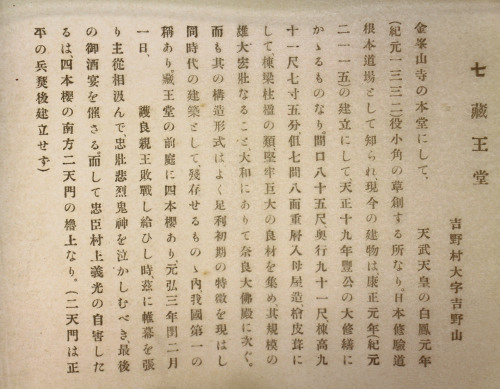 七 藏王堂
吉野村大字吉野山
金峯山寺の本堂にして、 天武天皇の白鳳元年
(紀元一三三二)役小角の草創する所なり。日本修驗道
根本道場として知られ、現今の建物は、康正元年(紀元
二一一五)の建立にして、天正十九年豐公の大修繕に
かゝるものなり。間口八十五尺、奧行九十一尺、棟高九
十一尺七寸五分、但七間八面重層入母屋造、檜皮葺に
して棟梁柱楹の類、堅牢巨大の良材を集め、其規模の
雄大宏壯なること、大和にありて奈良大佛殿に次ぐ。
而も其の構造形式はよく足利初期の特徵を現はし
同時代の建築として、殘存せるものゝ內我國第一の
稱あり。藏王堂の前庭に四本櫻あり、元弘三年閏二月
一日、 護良親王敗戰し給ひし時、茲に帷幕を張
り主從相汲んで、忠壯悲烈鬼神を泣かしむべき、最後
の御酒宴を催さる。而して忠臣村上義光の自害した
るは、四本櫻の南方二天門の櫓上なり。(二天門は正
平の兵燹後建立せず)